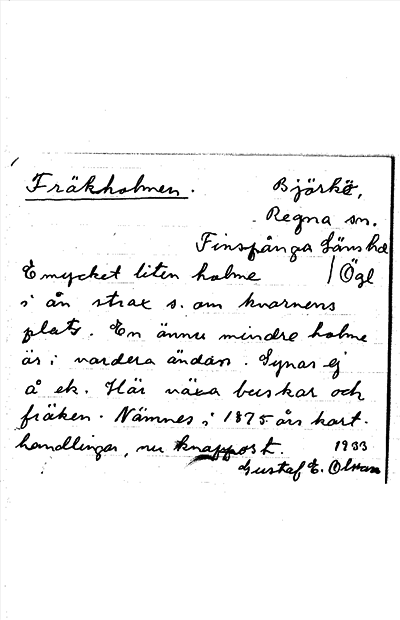 Fräkholmen.
Björkö,
Regna sn.
Finspånga läns hd
Ögl
E mycket liten holme
i ån strax s. om kvarnens
plats. En ännu mindre holme
är i vardera ändan. Synas ej
å ek. Här växa buskar och
fräken. Nämnes i 1875 års kart-
handlingar, nu knappast.
1933
Gustaf E. Olsson